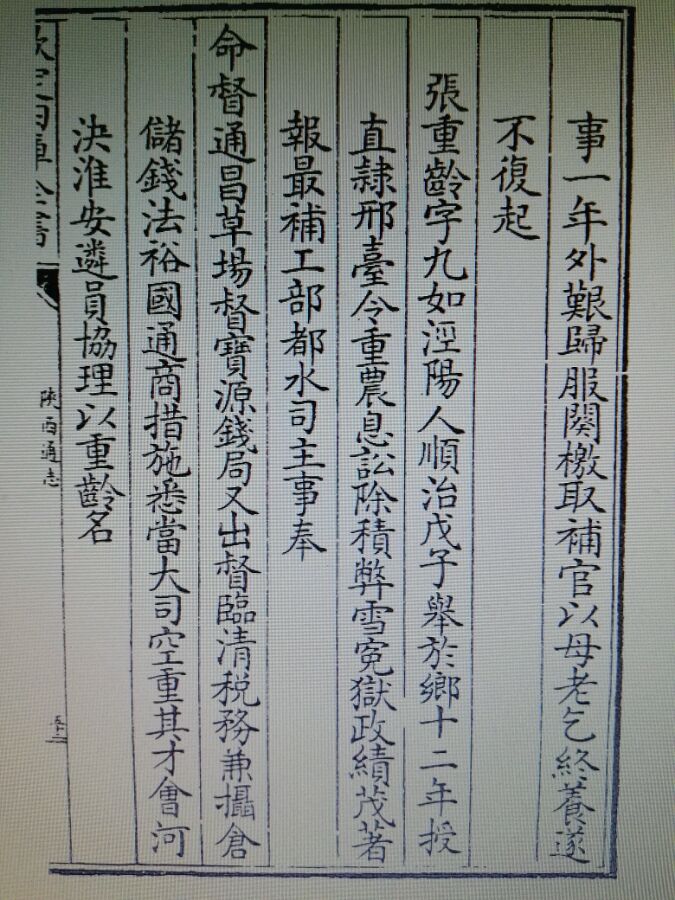 事一年外艱歸服闋檄取補官以母老乞終養遂
不復起
張重齡字九如涇陽人順治戊子舉於鄉十二年授
直隷邢臺令重農息訟除積弊雪冤獄政績茂著
報最補工部都水司主事奉
命督通昌草場督寶源錢局又出督臨清税務兼攝倉
儲錢法裕國通商措施悉當大司空重其才會河
決淮安遴員協理以重齡名
欽定四庫全書
陜西通志
五十二